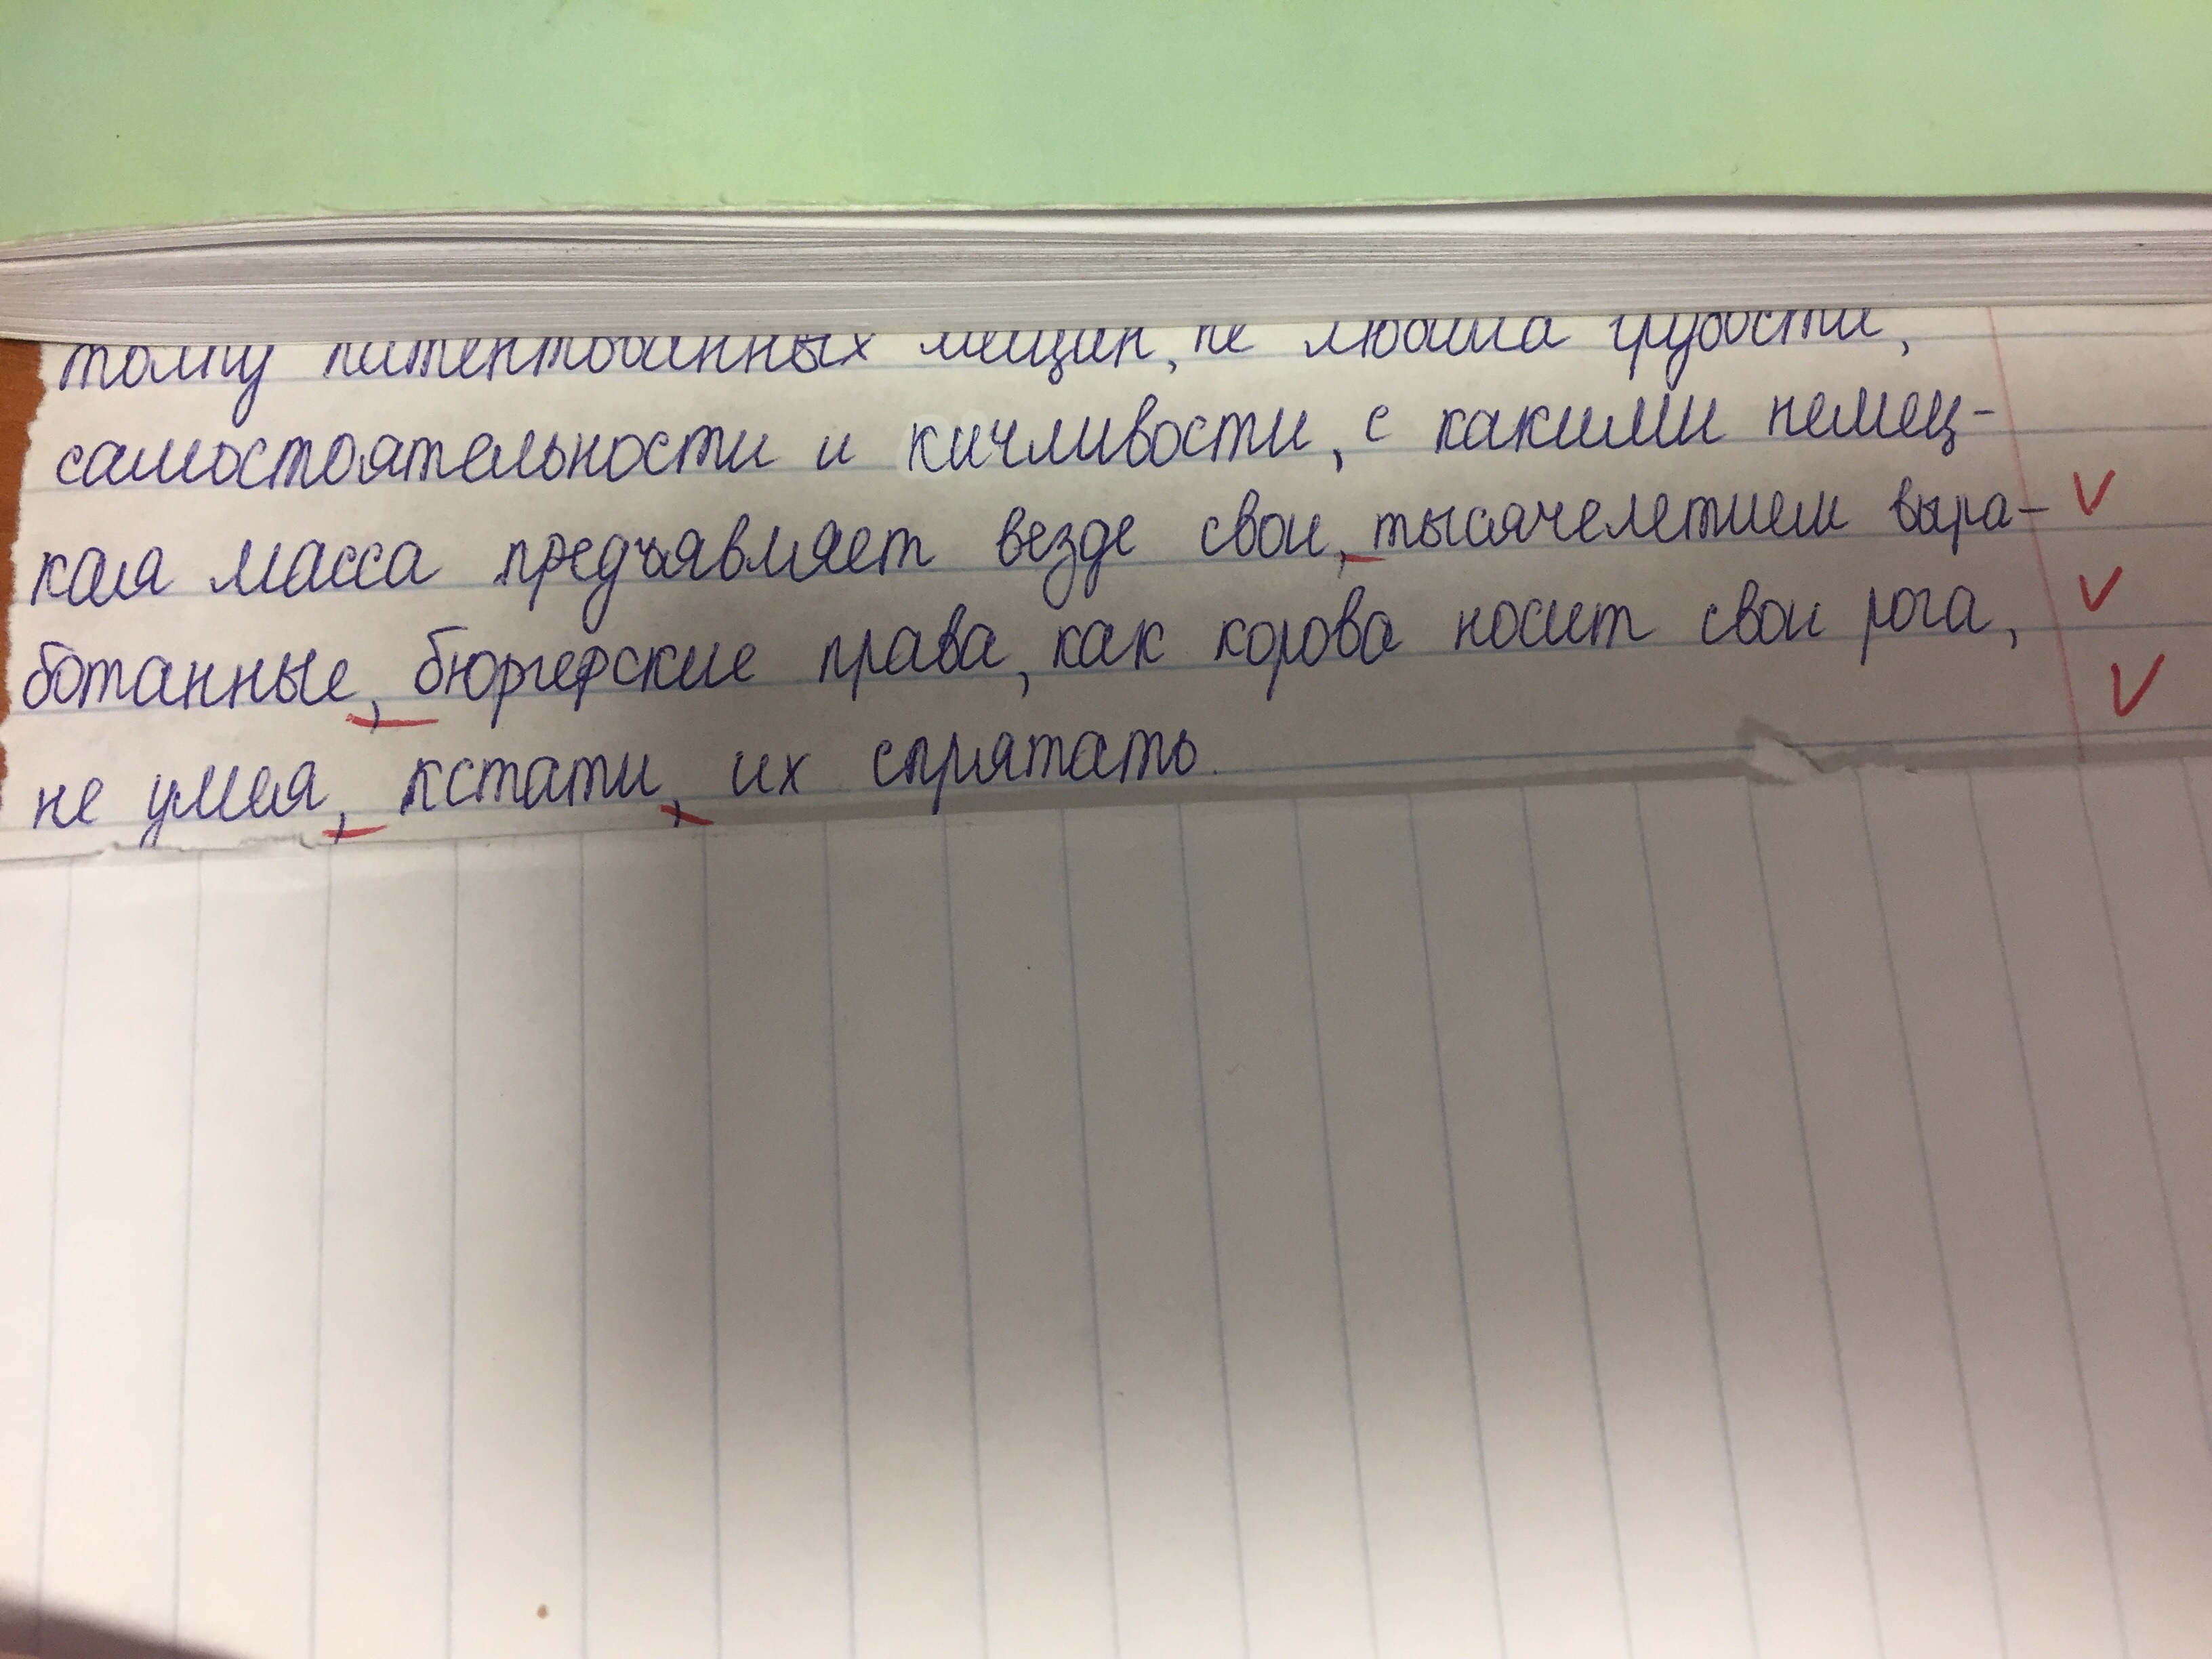 толпу патентованных мещан, не любила грубости,
самостоятельности и кичливости, с какими немец-
кая масса предъявляет везде свои, тысячелетием выра-
ботанные, бюргерские права, как корова носит свои рога,
не умея, кстати, их спрятать.